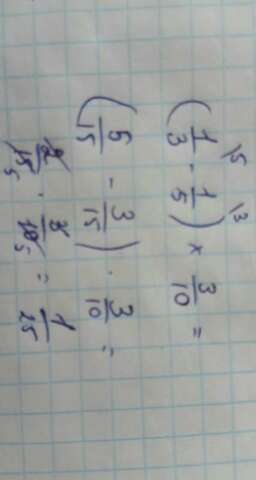 (1/3 \5 - 1/5 \3) × 3/10 =
(5/15 - 3/15) · 3/10 =
2/15 5 · 3/10 5 = 1/25